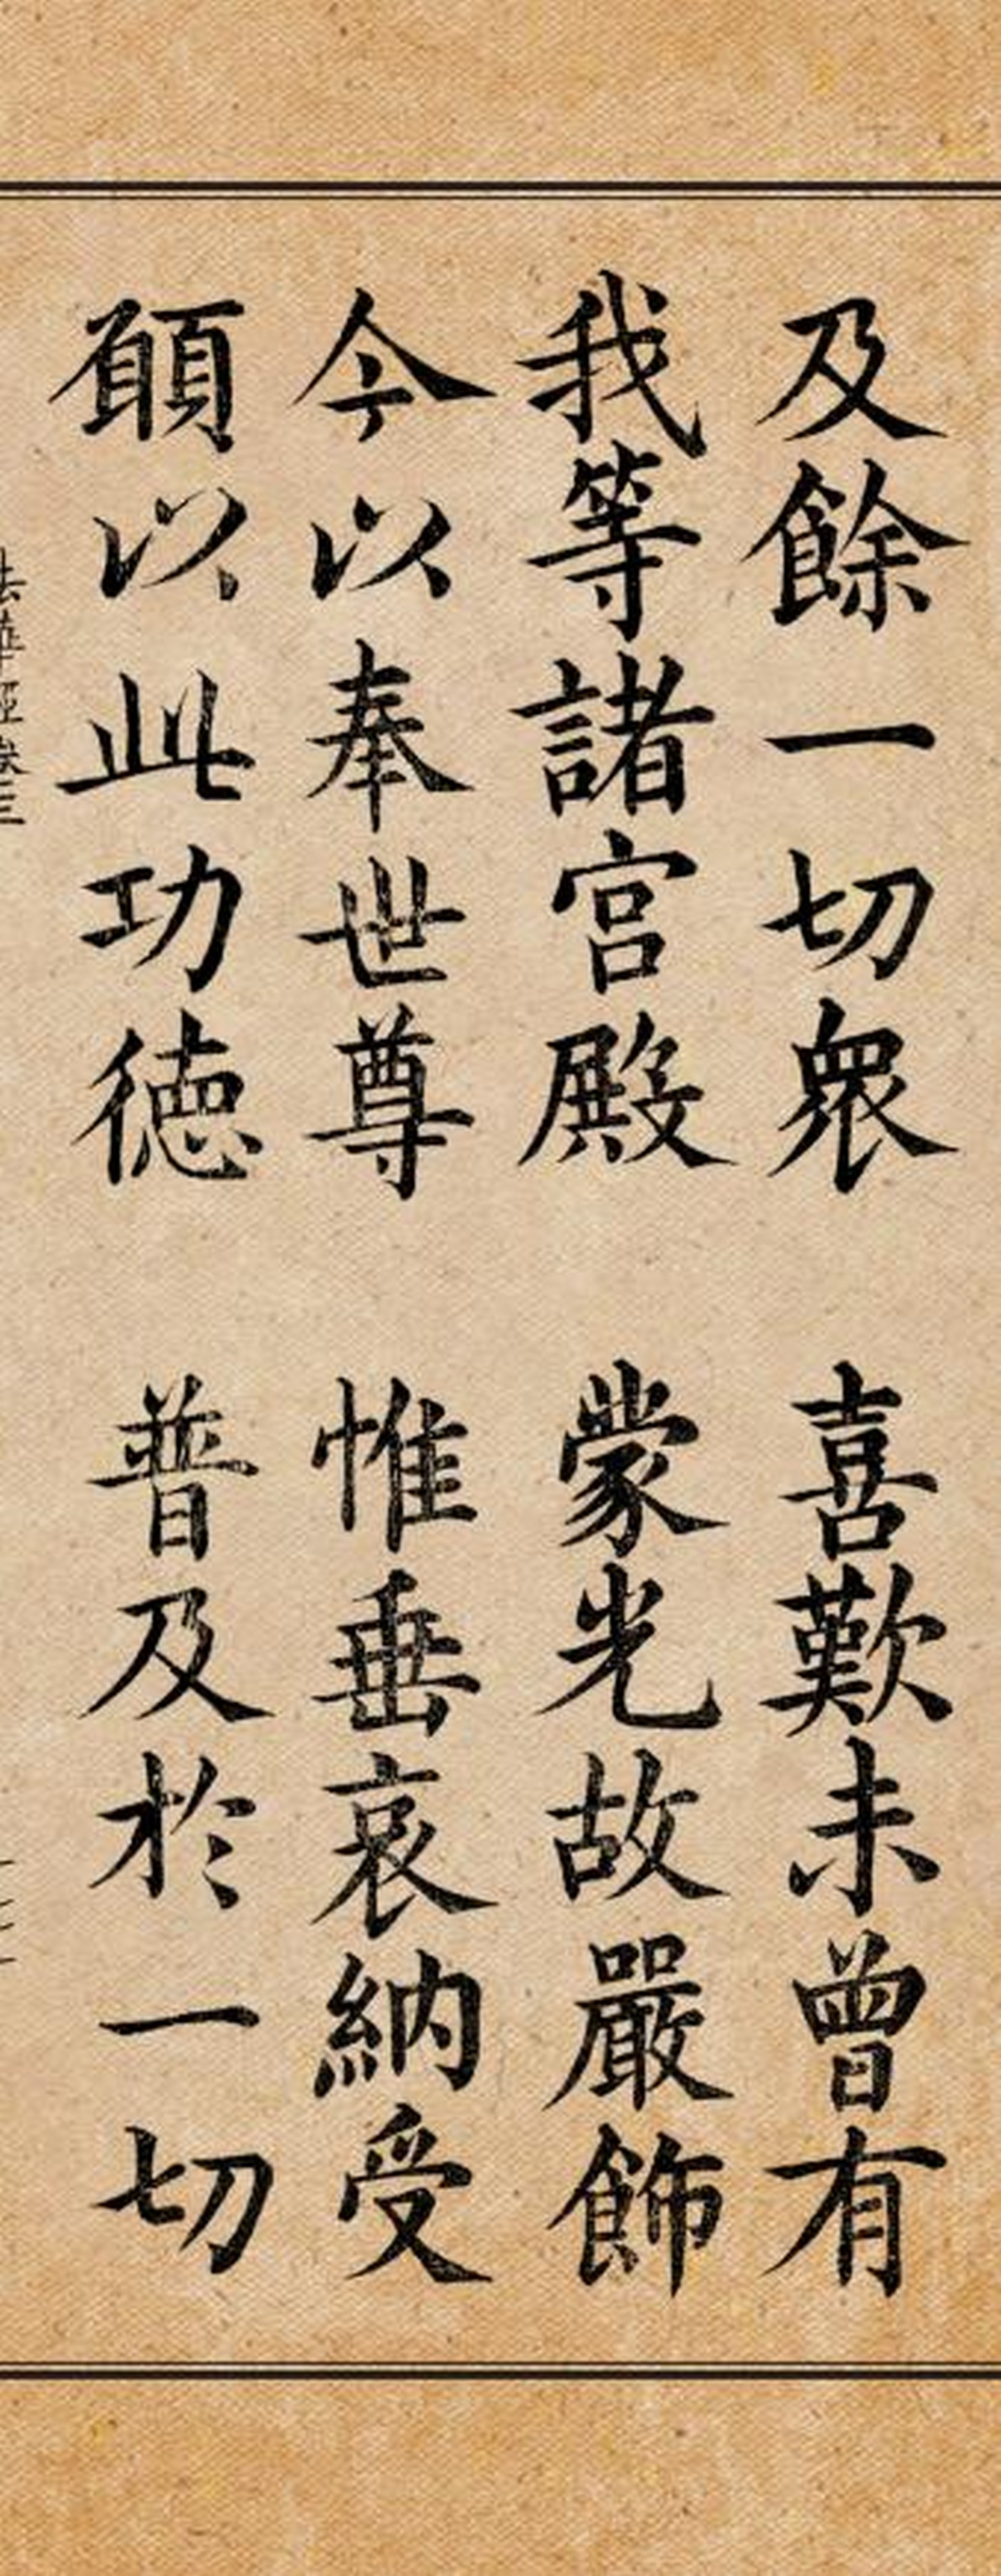 及餘一切衆 喜歎未曾有
我等諸宮殿 蒙光故嚴飾
今以奉世尊 惟垂哀納受
願以此功德 普及於一切
法華經卷三